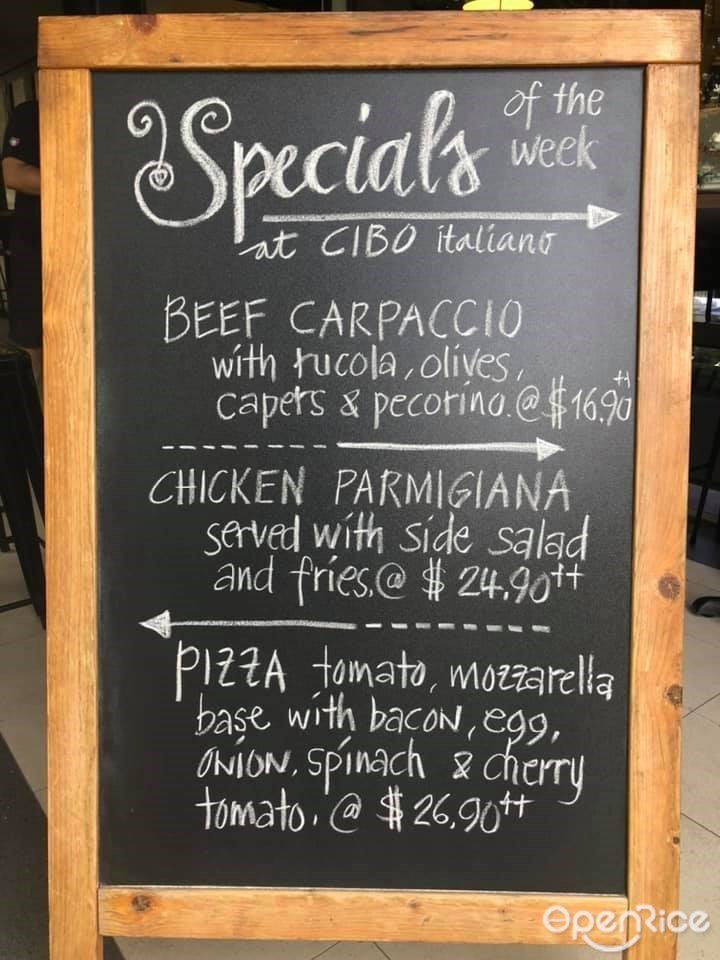 Specials of the week
at CIBO italiano
BEEF CARPACCIO
with rucola, olives,
capers & pecorino.@ $16.90++
CHICKEN PARMIGIANA
served with side salad
and fries.@ $ 24.90++
PIZZA tomato, mozzarella
base with bacon, egg,
ONION, spinach & cherry
tomato. @ $ 26.90++
OPENRICE